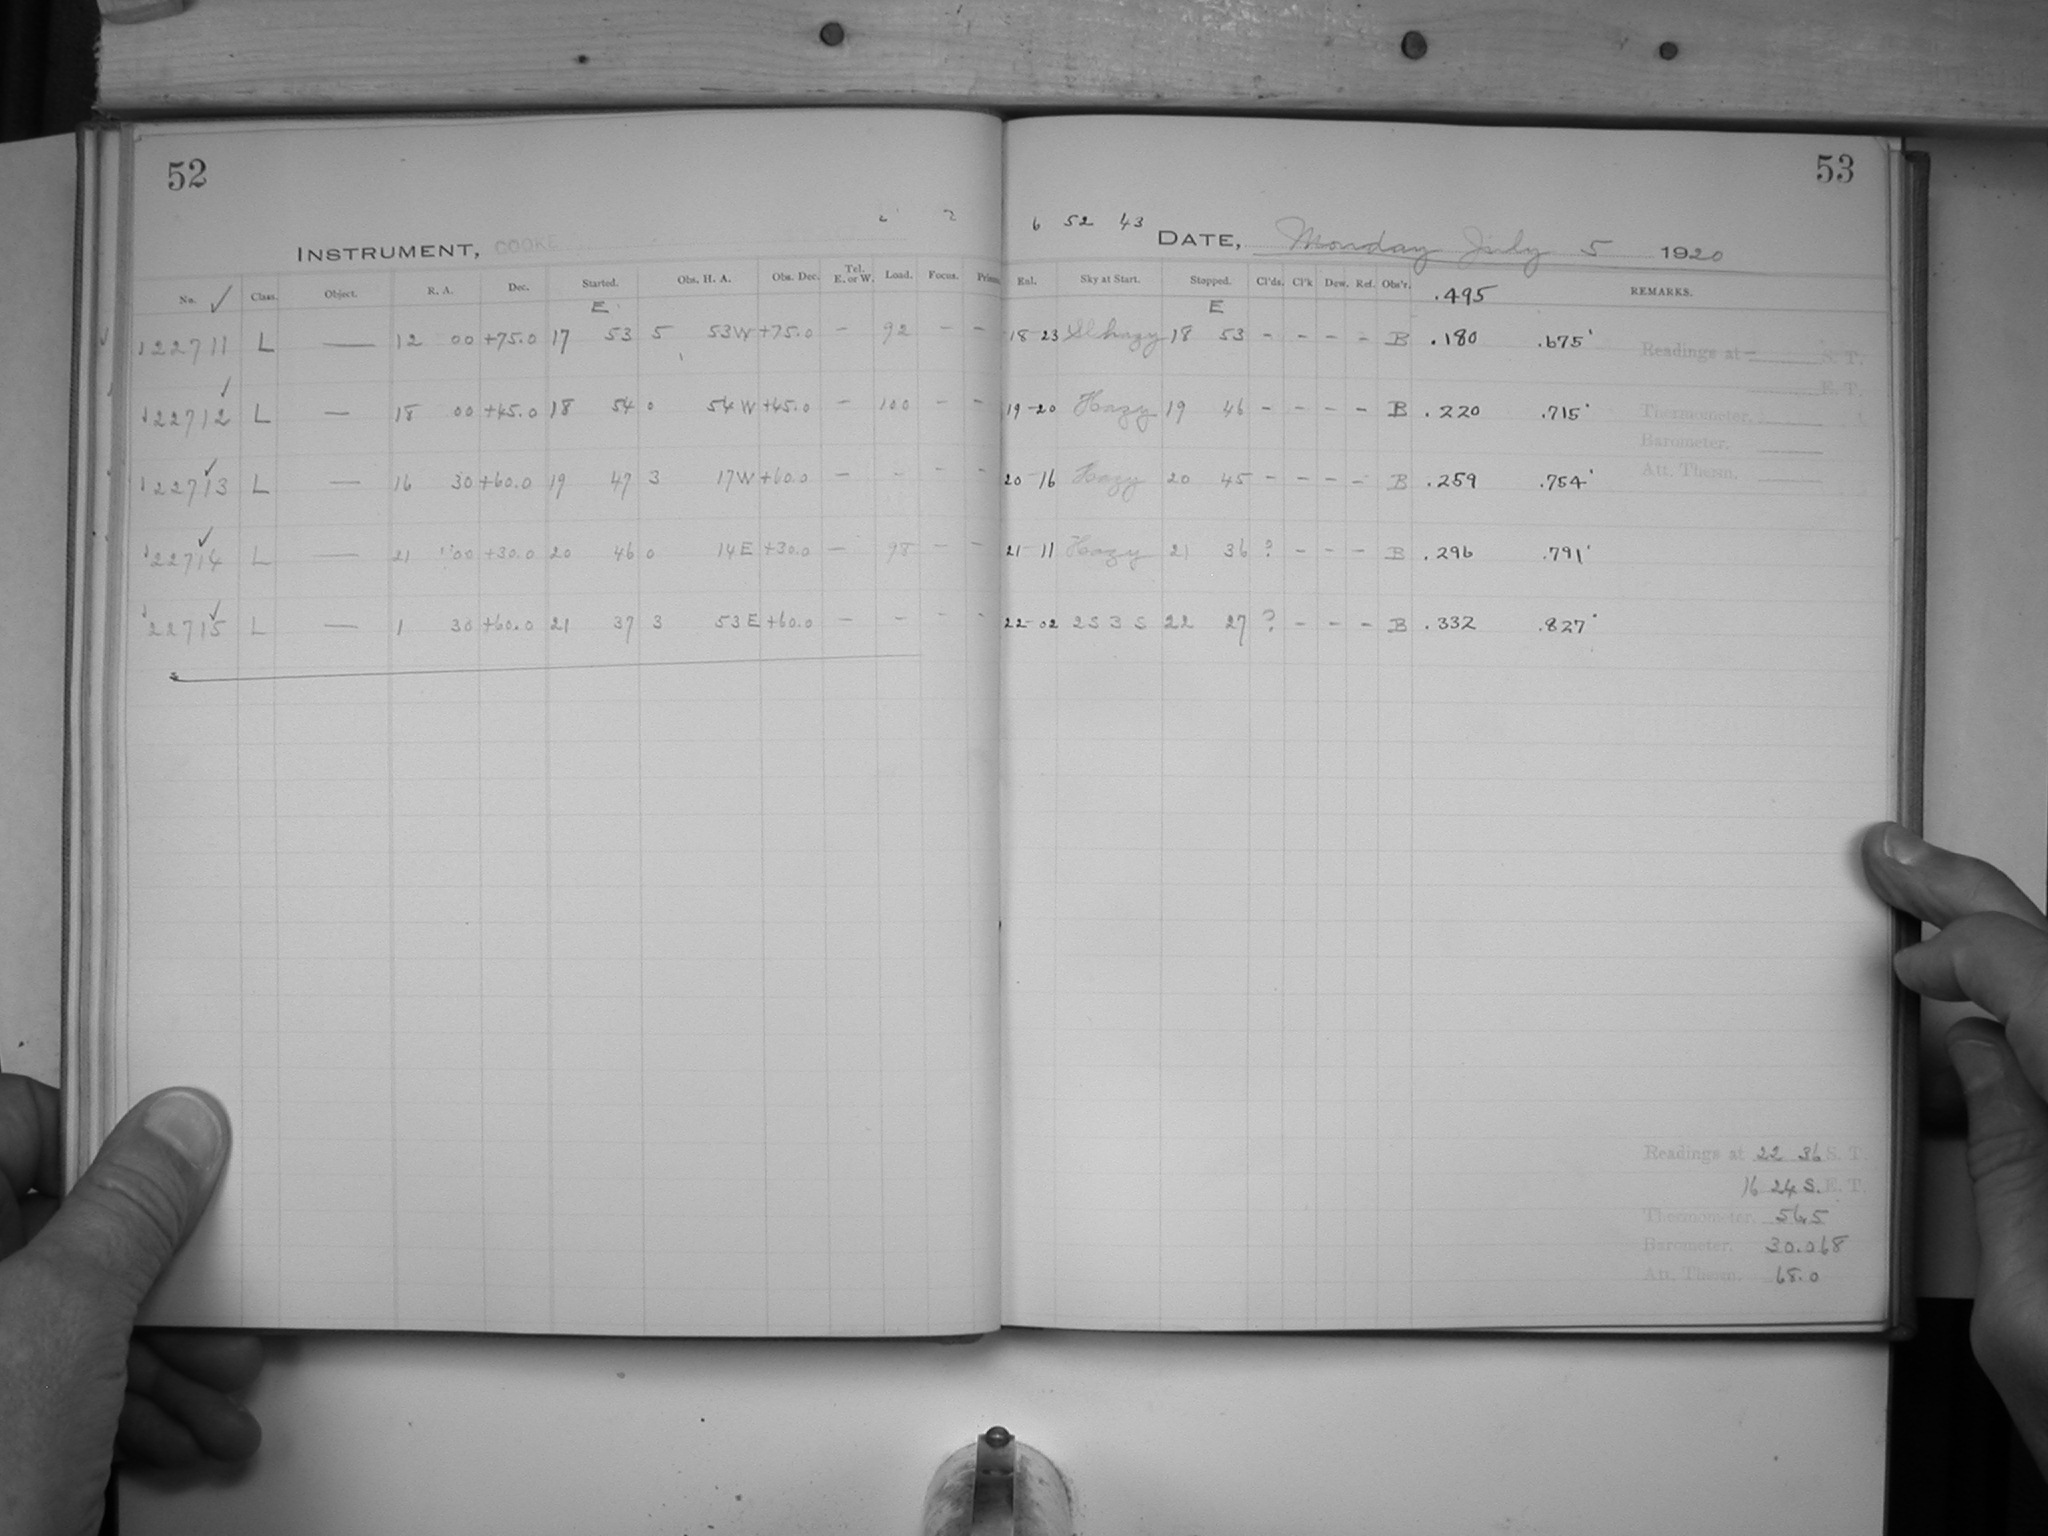 52
53
6 52 43
INSTRUMENT, COOKE
DATE, Monday July 5 1920
No. ✓ Class. Object. R. A. Dec. Started. Obs. H. A. Obs. Dec. Tel. E. or W. Load. Focus. Enl. Sky at Start. Stopped. Cl'ds. Cl'k Dew. Ref. Obs'r. .495 REMARKS.
E E
22711 L — 12 00 +75.0 17 53 5 53 W +75.0 – 92 – – 18-23 Sl hazy 18 53 – – – – B .180 .675
22712 L — 18 00 +45.0 18 54 0 54 W +45.0 – 100 – – 19-20 Hazy 19 46 – – – – B .220 .715
22713 L — 16 30 +60.0 19 47 3 17 W +60.0 – – – – 20-16 Hazy 20 45 – – – – B .259 .754
22714 L — 21 00 +30.0 20 46 0 14 E +30.0 – 98 – – 21-11 Hazy 21 36 ? – – – B .296 .791
22715 L — 1 30 +60.0 21 37 3 53 E +60.0 – – – – 22-02 2S 3 S 22 27 ? – – – B .332 .827
Readings at — S. T.
E. T.
Thermometer.
Barometer.
Att. Therm.
Readings at 22 36 S. T.
16 24 S. E. T.
Thermometer. 56.5
Barometer. 30.068
Att. Therm. 68.0